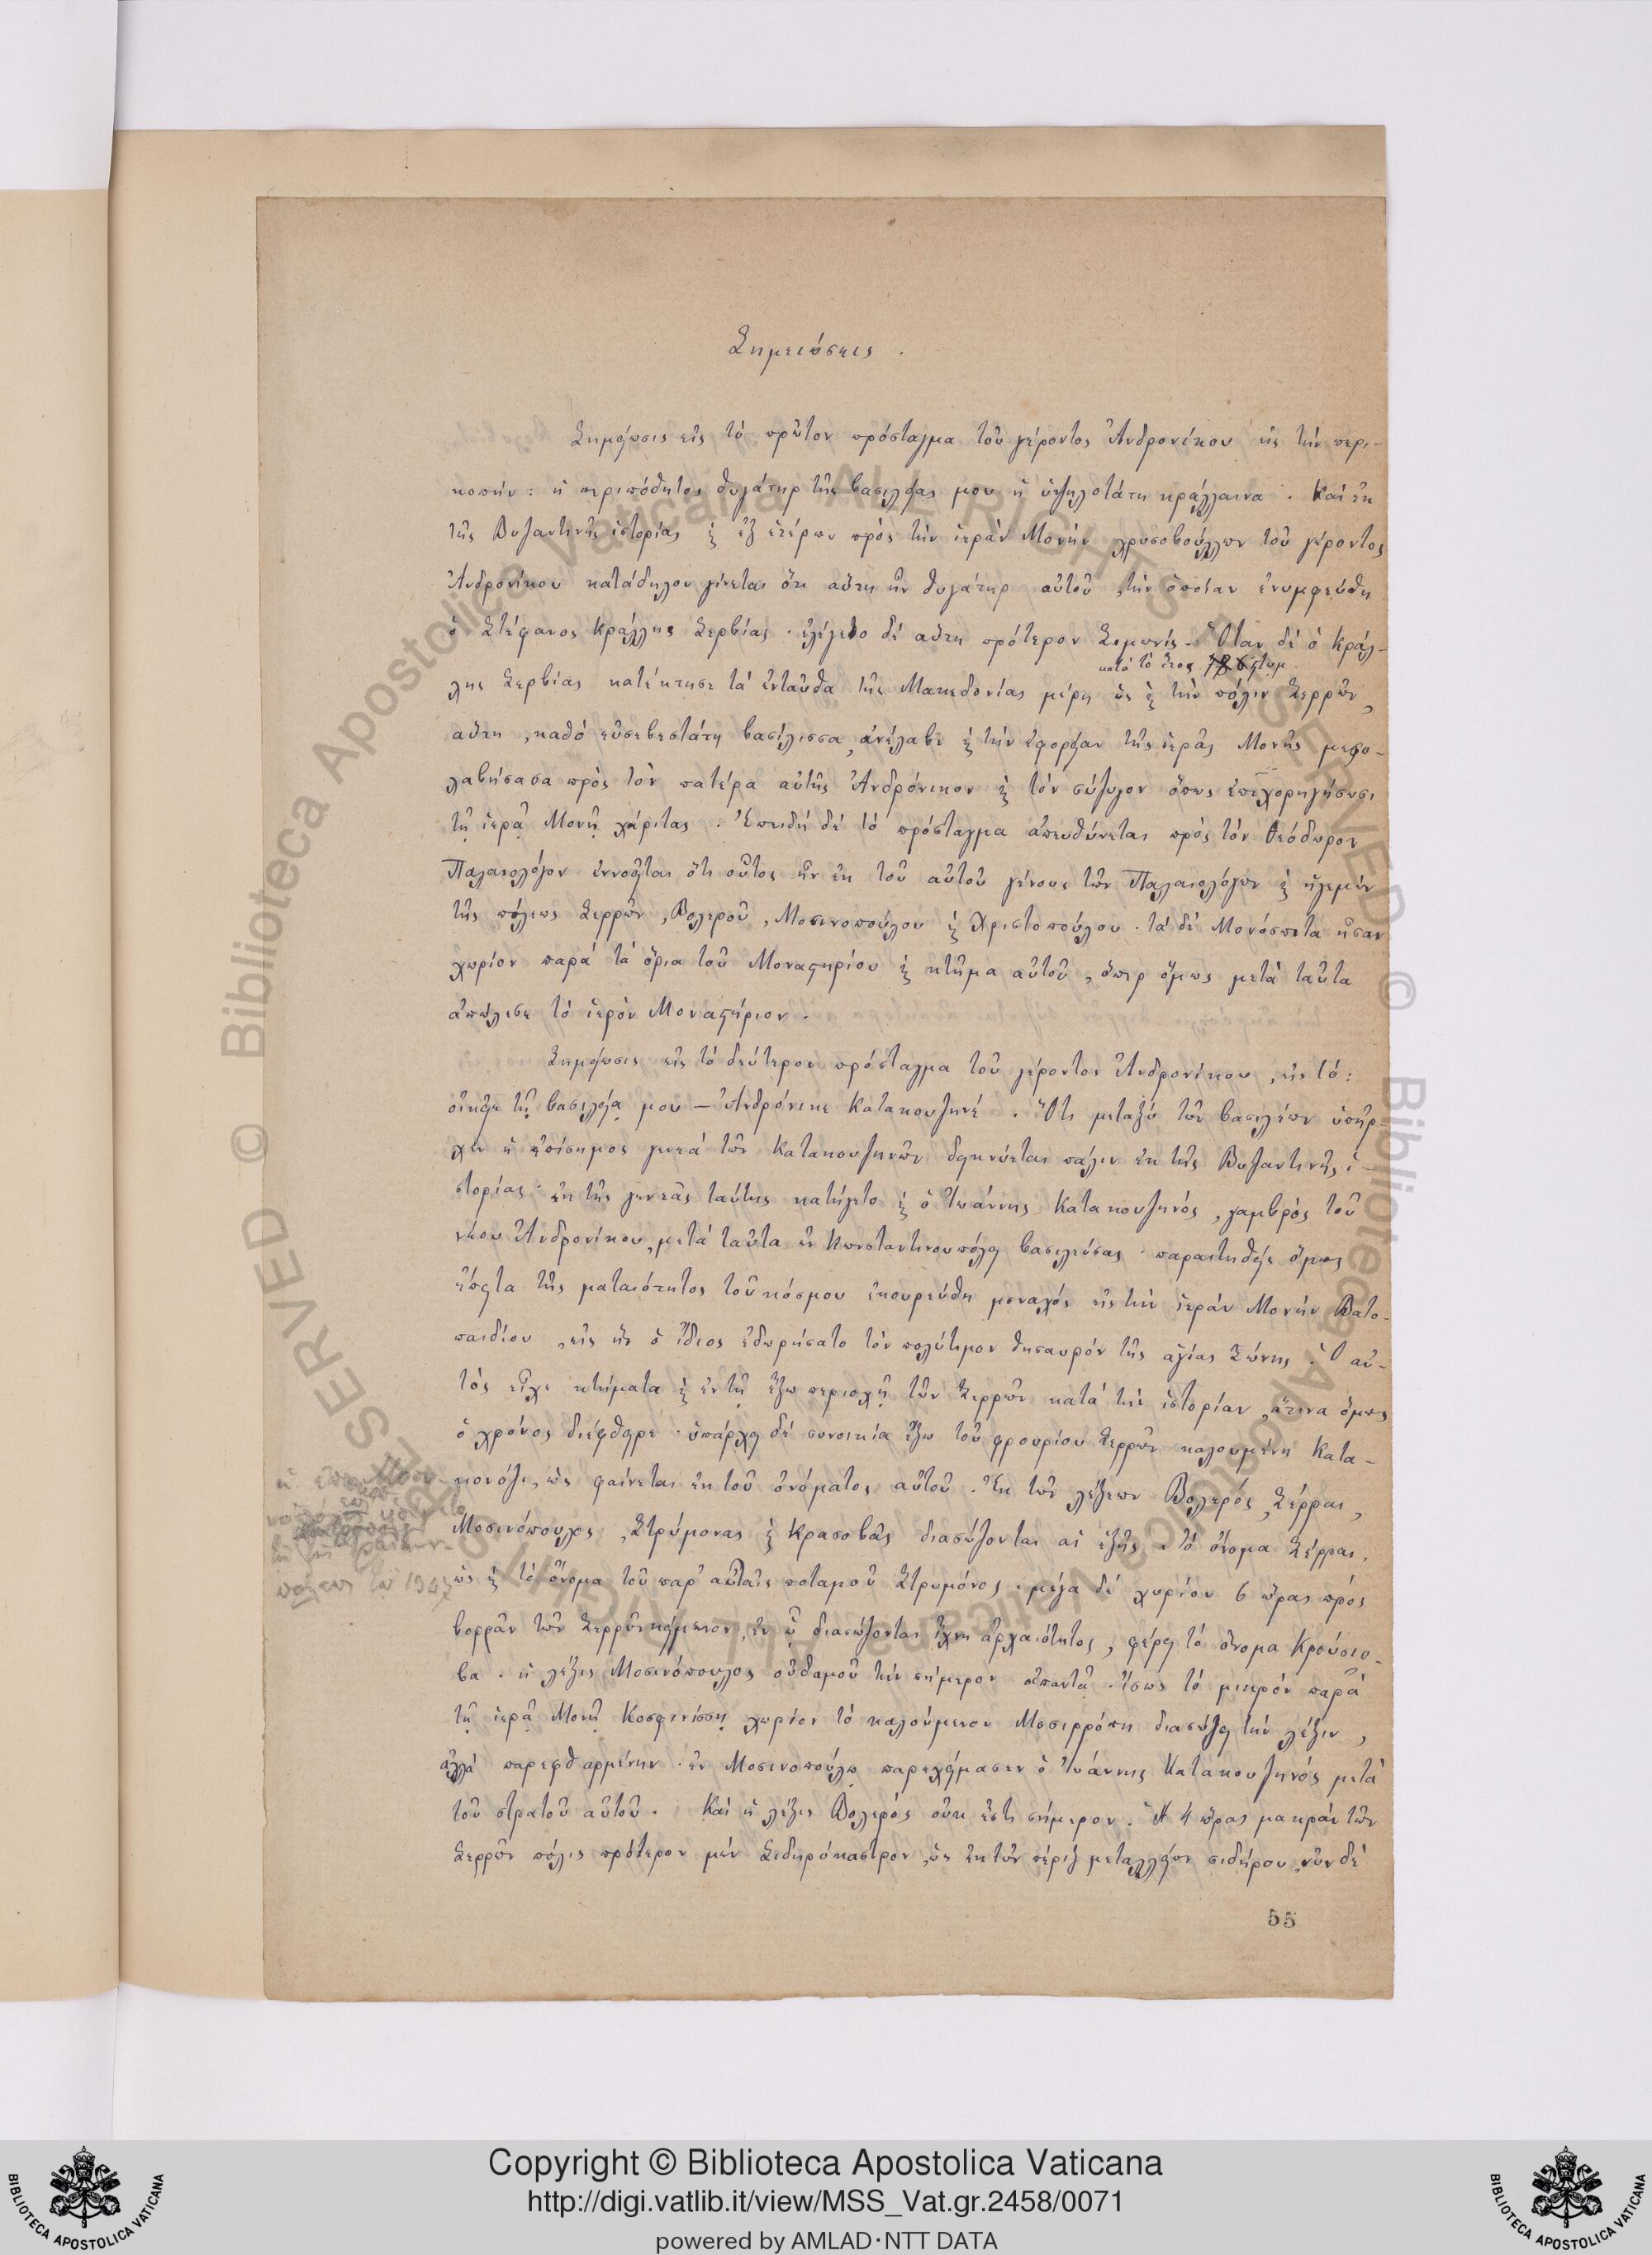 Σημειώσεις.
Σημείωσις εἰς τὸ πρῶτον πρόσταγμα τοῦ γέροντος Ἀνδρονίκου εἰς τὴν περι-
κοπήν: ἡ περιπόθητος θυγάτηρ τῆς βασιλείας μου ἡ ὑψηλοτάτη κράλλαινα. Καὶ ἐκ
τῆς Βυζαντινῆς ἱστορίας ϗ ἐξ ἑτέρων πρὸς τὴν ἱερὰν Μονὴν χρυσοβούλλων τοῦ γέροντος
Ἀνδρονίκου κατάδηλον γίνεται ὅτι αὕτη ἦν θυγάτηρ αὐτοῦ, τὴν ὁποίαν ἐνυμφεύθη
ὁ Στέφανος Κράλλης Σερβίας. ἐλέγετο δὲ αὕτη πρότερον Σιμωνίς. Ὅταν δὲ ὁ Κράλ-
κατὰ τὸ ἔτος
λης Σερβίας κατέκτησε τὰ ἐνταῦθα τῆς Μακεδονίας μέρη ὡς ϗ τὴν πόλιν Σερρῶν,
αὕτη, καθὸ εὐσεβεστάτη βασίλισσα, ἀνέλαβε ϗ τὴν ἐφορείαν τῆς ἱερᾶς Μονῆς μεσο-
λαβήσασα πρὸς τὸν πατέρα αὐτῆς Ἀνδρόνικον ϗ τὸν σύζυγον ὅπως ἐπιχορηγήσωσι
τῇ ἱερᾷ Μονῇ χάριτας. Ἐπειδὴ δὲ τὸ πρόσταγμα ἀπευθύνεται πρὸς τὸν Θεόδωρον
Παλαιολόγον ἐννοεῖται ὅτι οὗτος ἦν ἐκ τοῦ αὐτοῦ γένους τῶν Παλαιολόγων ϗ ἡγεμὼν
τῆς πόλεως Σερρῶν, Βολεροῦ, Μοσινοπούλου ϗ Χριστοπούλου. τὰ δὲ Μονόσπιτα ἦσαν
χωρίον παρὰ τὰ ὅρια τοῦ Μοναστηρίου ϗ κτῆμα αὐτοῦ, ὅπερ ὅμως μετὰ ταῦτα
ἀπώλεσε τὸ ἱερὸν Μοναστήριον.
Σημείωσις εἰς τὸ δεύτερον πρόσταγμα τοῦ γέροντος Ἀνδρονίκου, εἰς τό:
οἰκεῖε τῇ βασιλείᾳ μου — Ἀνδρόνικε Κατακουζηνέ. Ὅτι μεταξὺ τῶν βασιλέων ὑπῆρ-
χεν ἡ ἐπίσημος γενεὰ τῶν Κατακουζηνῶν δεικνύεται πάλιν ἐκ τῆς Βυζαντινῆς ἱ-
στορίας· ἐκ τῆς γενεᾶς ταύτης κατήγετο ϗ ὁ Ἰωάννης Κατακουζηνός, γαμβρὸς τοῦ
νέου Ἀνδρονίκου, μετὰ ταῦτα ἐν Κωνσταντινουπόλει βασιλεύσας. παραιτηθεὶς ὅμως
ἔπειτα τῆς ματαιότητος τοῦ κόσμου ἐκουρεύθη μοναχός εἰς τὴν ἱερὰν Μονὴν Βατο-
παιδίου, εἰς ἣν ὁ ἴδιος ἐδωρήσατο τὸν πολύτιμον θησαυρὸν τῆς ἁγίας Ζώνης. Ὁ αὐ-
τὸς εἶχε κτήματα ϗ ἐν τῇ ἔξω περιοχῇ τῶν Σερρῶν κατὰ τὴν ἱστορίαν, ἅτινα ὅμως
ὁ χρόνος διέφθειρε. ὑπάρχει δὲ συνοικία ἔξω τοῦ φρουρίου Σερρῶν καλουμένη Κατα-
κονόζι, ὡς φαίνεται ἐκ τοῦ ὀνόματος αὐτοῦ. Ἐκ τῶν λέξεων Βολερός, Σέρραι,
Μοσινόπουλος, Στρύμονας ϗ Κρασοβᾶς διασώζονται αἱ ἑξῆς. τὸ ὄνομα Σέρραι,
ὡς ϗ τὸ ὄνομα τοῦ παρ' αὐταῖς ποταμοῦ Στρυμόνος. μέγα δὲ χωρίον 6 ὥρας πρὸς
βορρᾶν τῶν Σερρῶν κείμενον, ἐν ᾧ διασώζονται ἴχνη ἀρχαιότητος, φέρει τὸ ὄνομα Κρούσιο-
βα. ἡ λέξις Μοσινόπουλος οὐδαμοῦ τὴν σήμερον ἀπαντᾷ. Ἴσως τὸ μικρὸν παρὰ
τῇ ἱερᾷ Μονῇ Κοσφινίσσῃ χωρίον τὸ καλούμενον Μοσιρρόπη διασώζει τὴν λέξιν,
ἀλλὰ παρεφθαρμένην. ἐν Μοσινοπούλῳ παρεχείμασεν ὁ Ἰωάννης Κατακουζηνός μετὰ
τοῦ στρατοῦ αὐτοῦ. Καὶ ἡ λέξις Βολερός οὐκ ἔστι σήμερον. Ἡ 4 ὥρας μακρὰν τῶν
Σερρῶν πόλις πρότερον μὲν Σιδηρόκαστρον, ὡς ἐκ τῶν πέριξ μεταλλείων σιδήρου, νῦν δὲ
55
Copyright © Biblioteca Apostolica Vaticana
http://digi.vatlib.it/view/MSS_Vat.gr.2458/0071
powered by AMLAD·NTT DATA
BIBLIOTECA APOSTOLICA VATICANA
BIBLIOTECA APOSTOLICA VATICANA
© Biblioteca Apostolica Vaticana ALL RIGHTS RESERVED
© Biblioteca Apostolica Vaticana ALL RIGHTS RESERVED